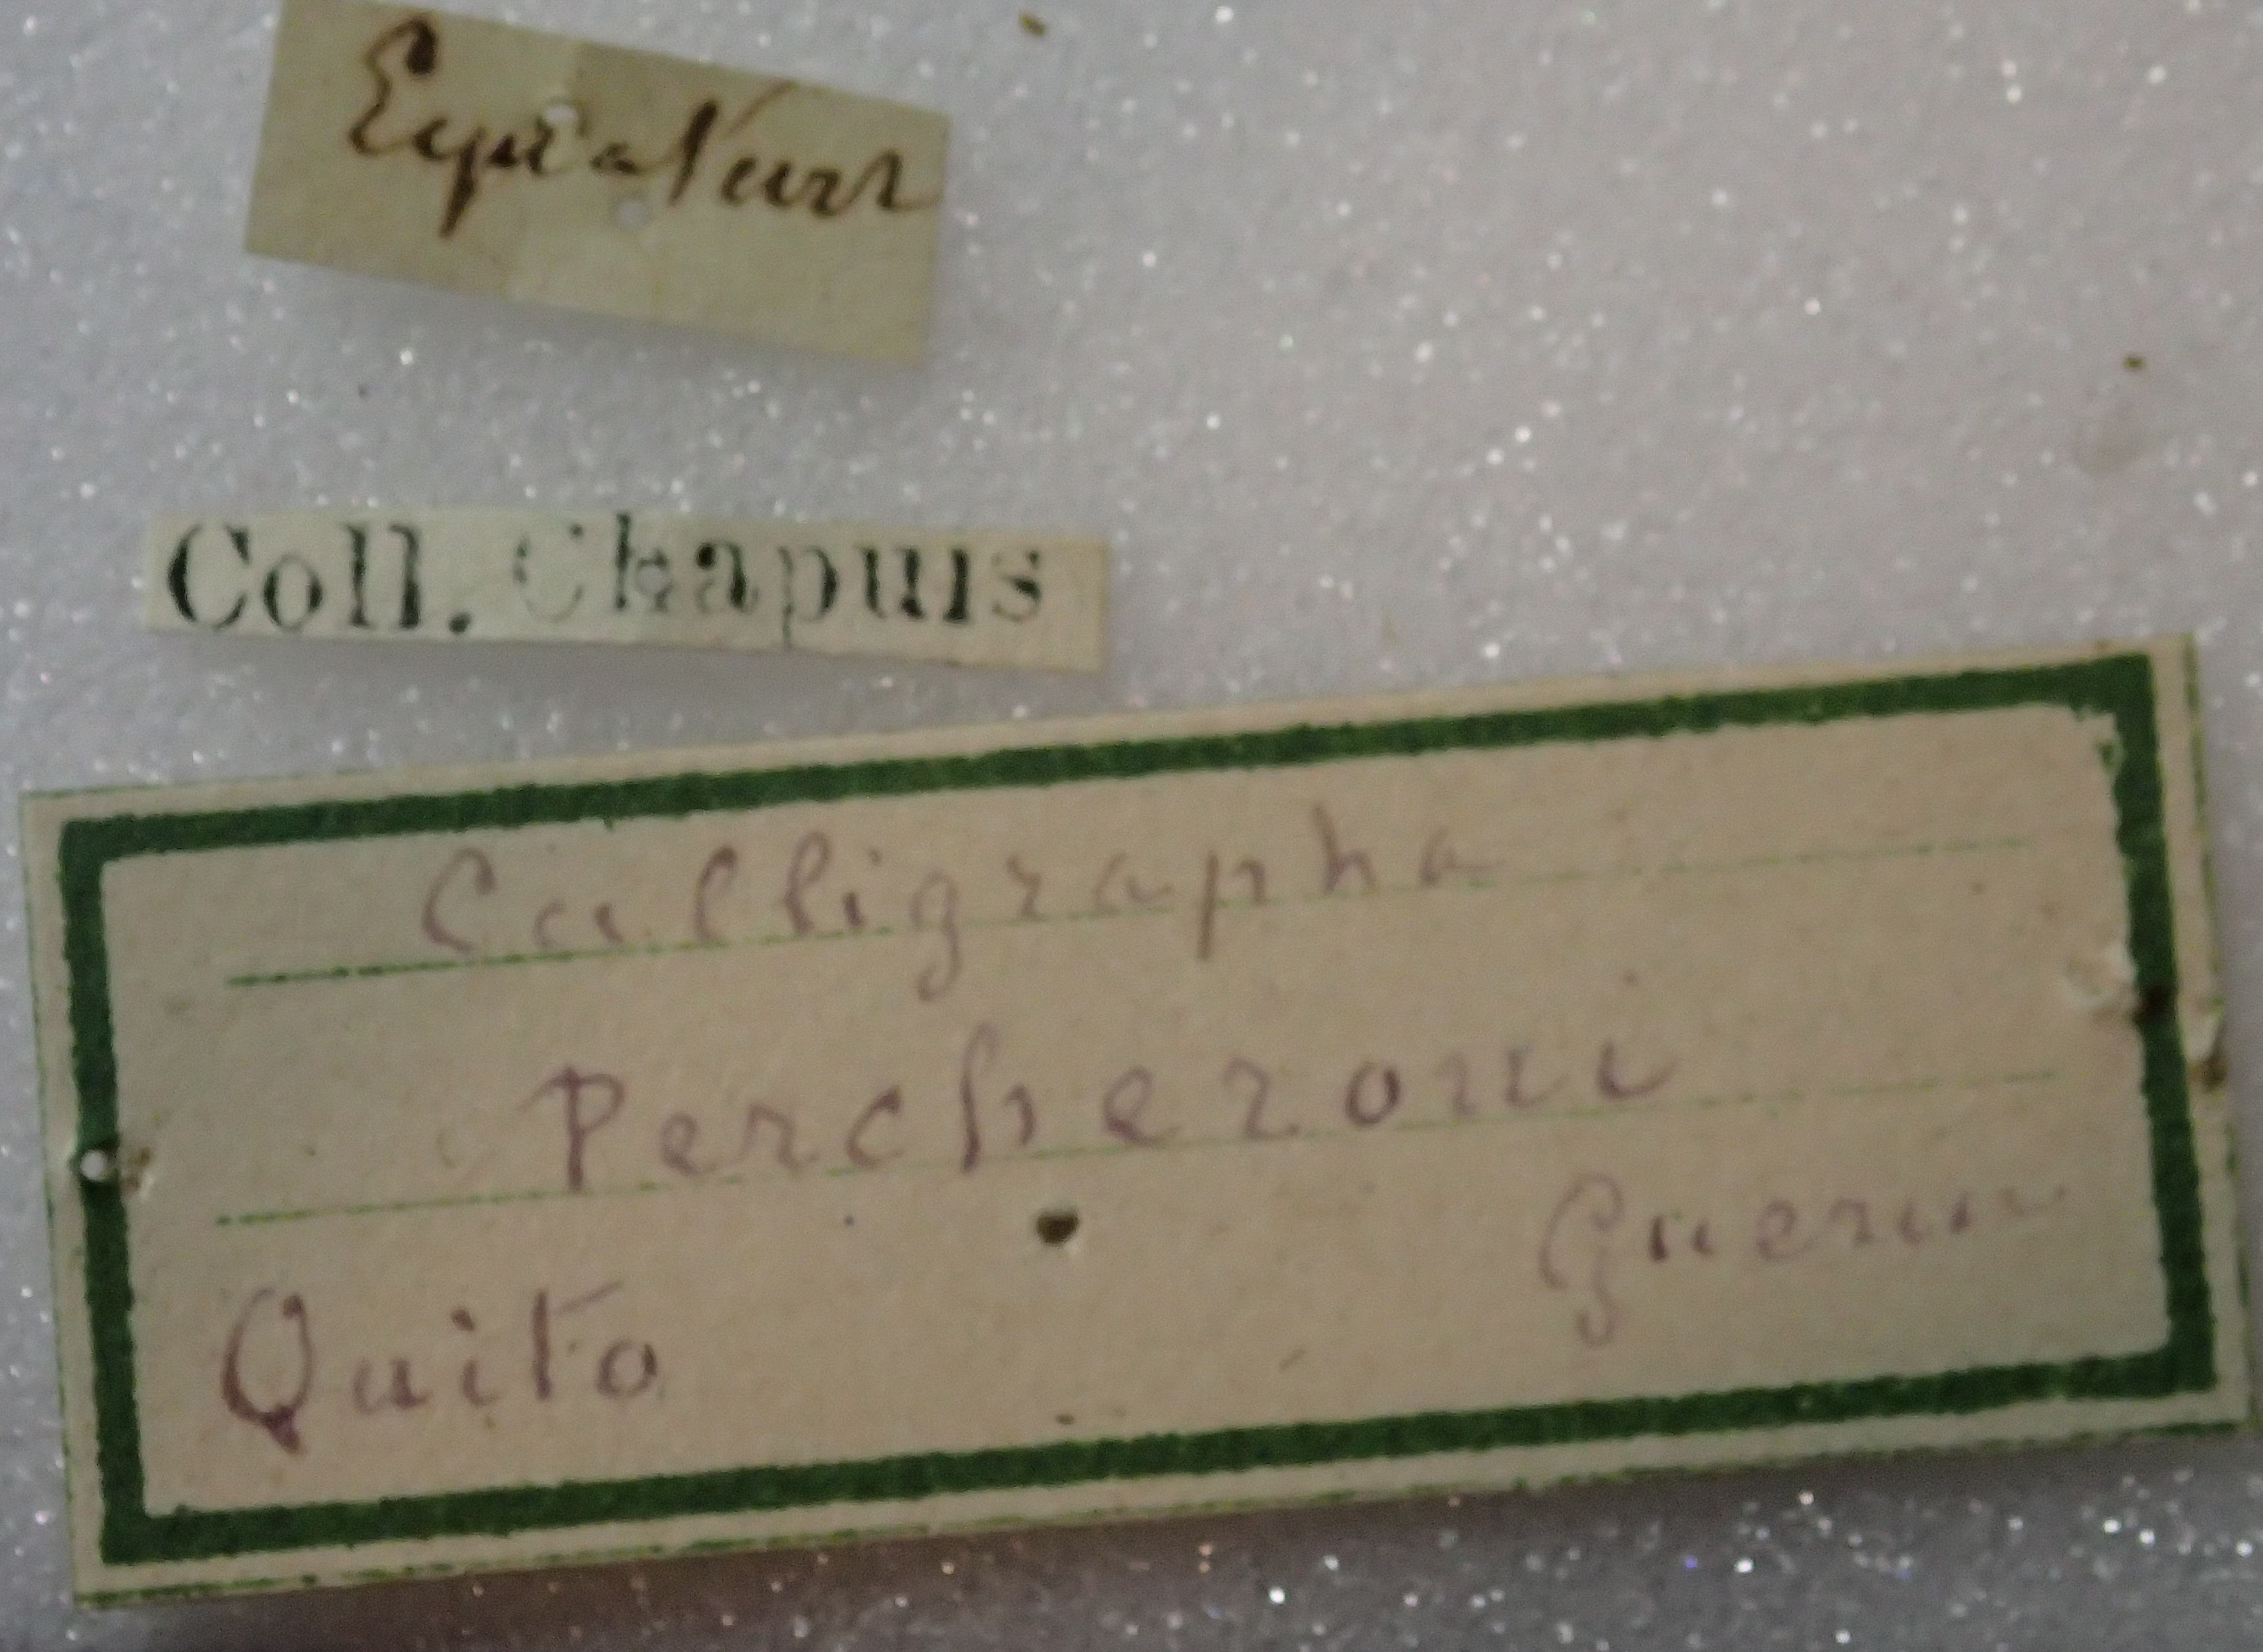 Equateur
Coll. Chapuis
Calligrapha
Percheroni
Guerin
Quito